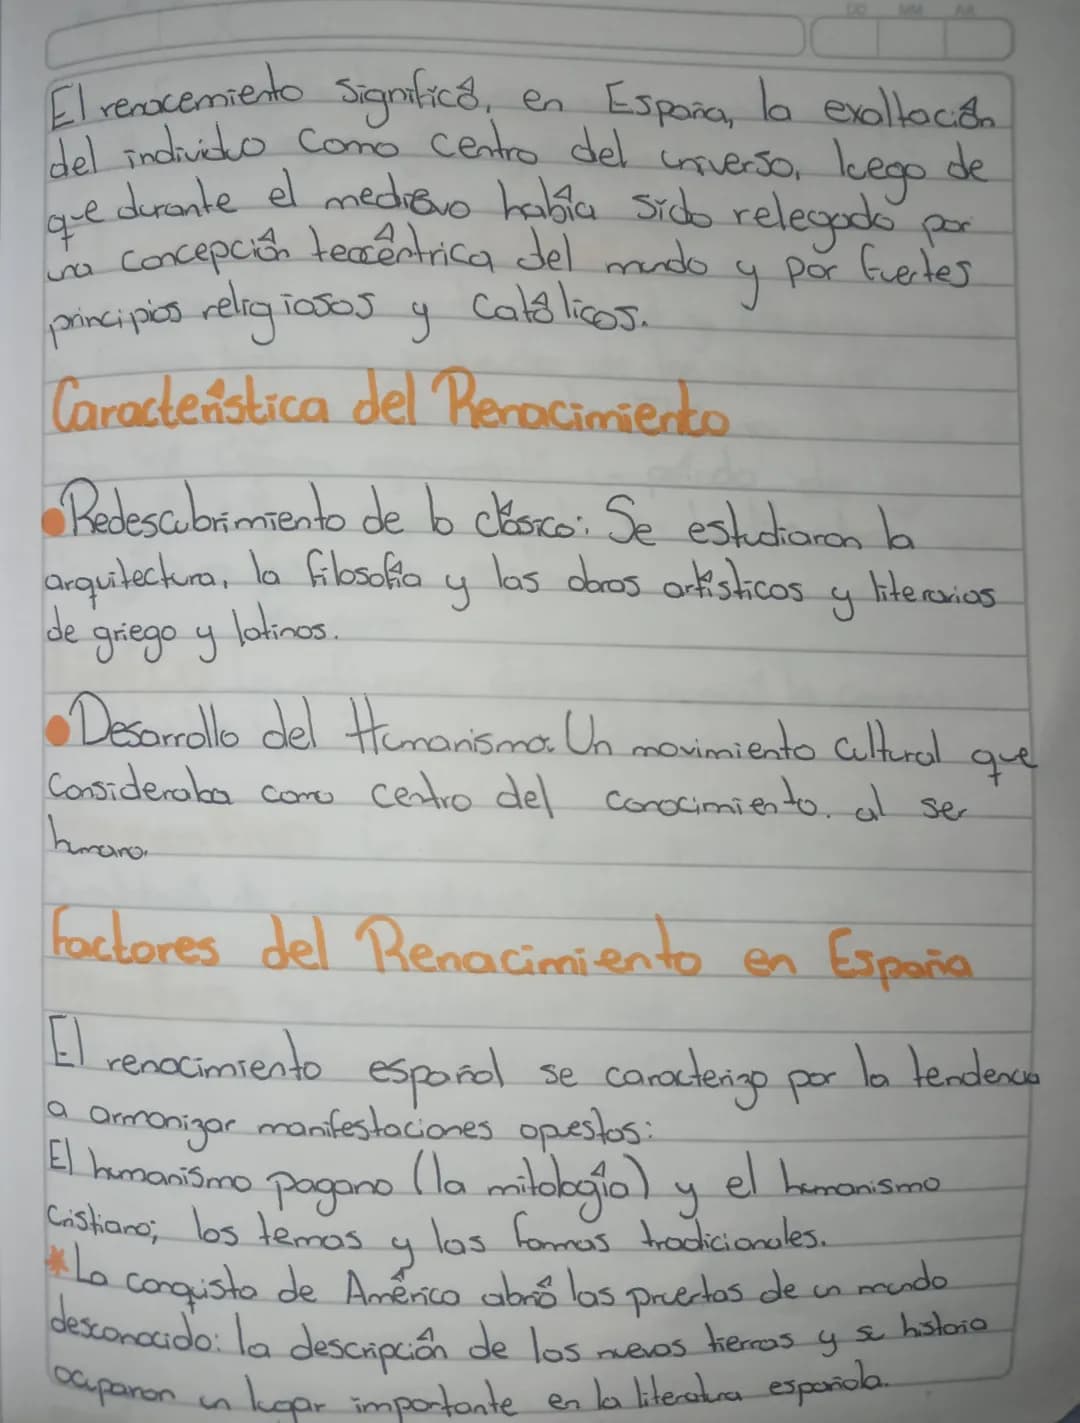 DD MM AA
El renacemiento significó, en España, la exaltación
del individuo como centro del universo, luego de
que durante el medievo había sido relegado por
una concepción teocéntrica del mundo y por fuertes
principios religiosos y católicos.
Característica del Renacimiento
Redescubrimiento de lo clásico: Se estudiaron la
arquitectura, la filosofía y las obras artísticas y literarias
de griego y latinos.
Desarrollo del Humanismo. Un movimiento cultural que
consideraba como centro del conocimiento. al ser
humano.
Factores del Renacimiento en España
El renacimiento español se caracterizo por la tendencia
a armonizar manifestaciones opuestas:
El humanismo pagano (la mitología) y el humanismo
cristiano; los temas y las formas tradicionales.
* La conquista de América abrió las puertas de un mundo
desconocido: la descripción de las nuevas tierras y su historia
ocuparon un lugar importante en la literatura española.